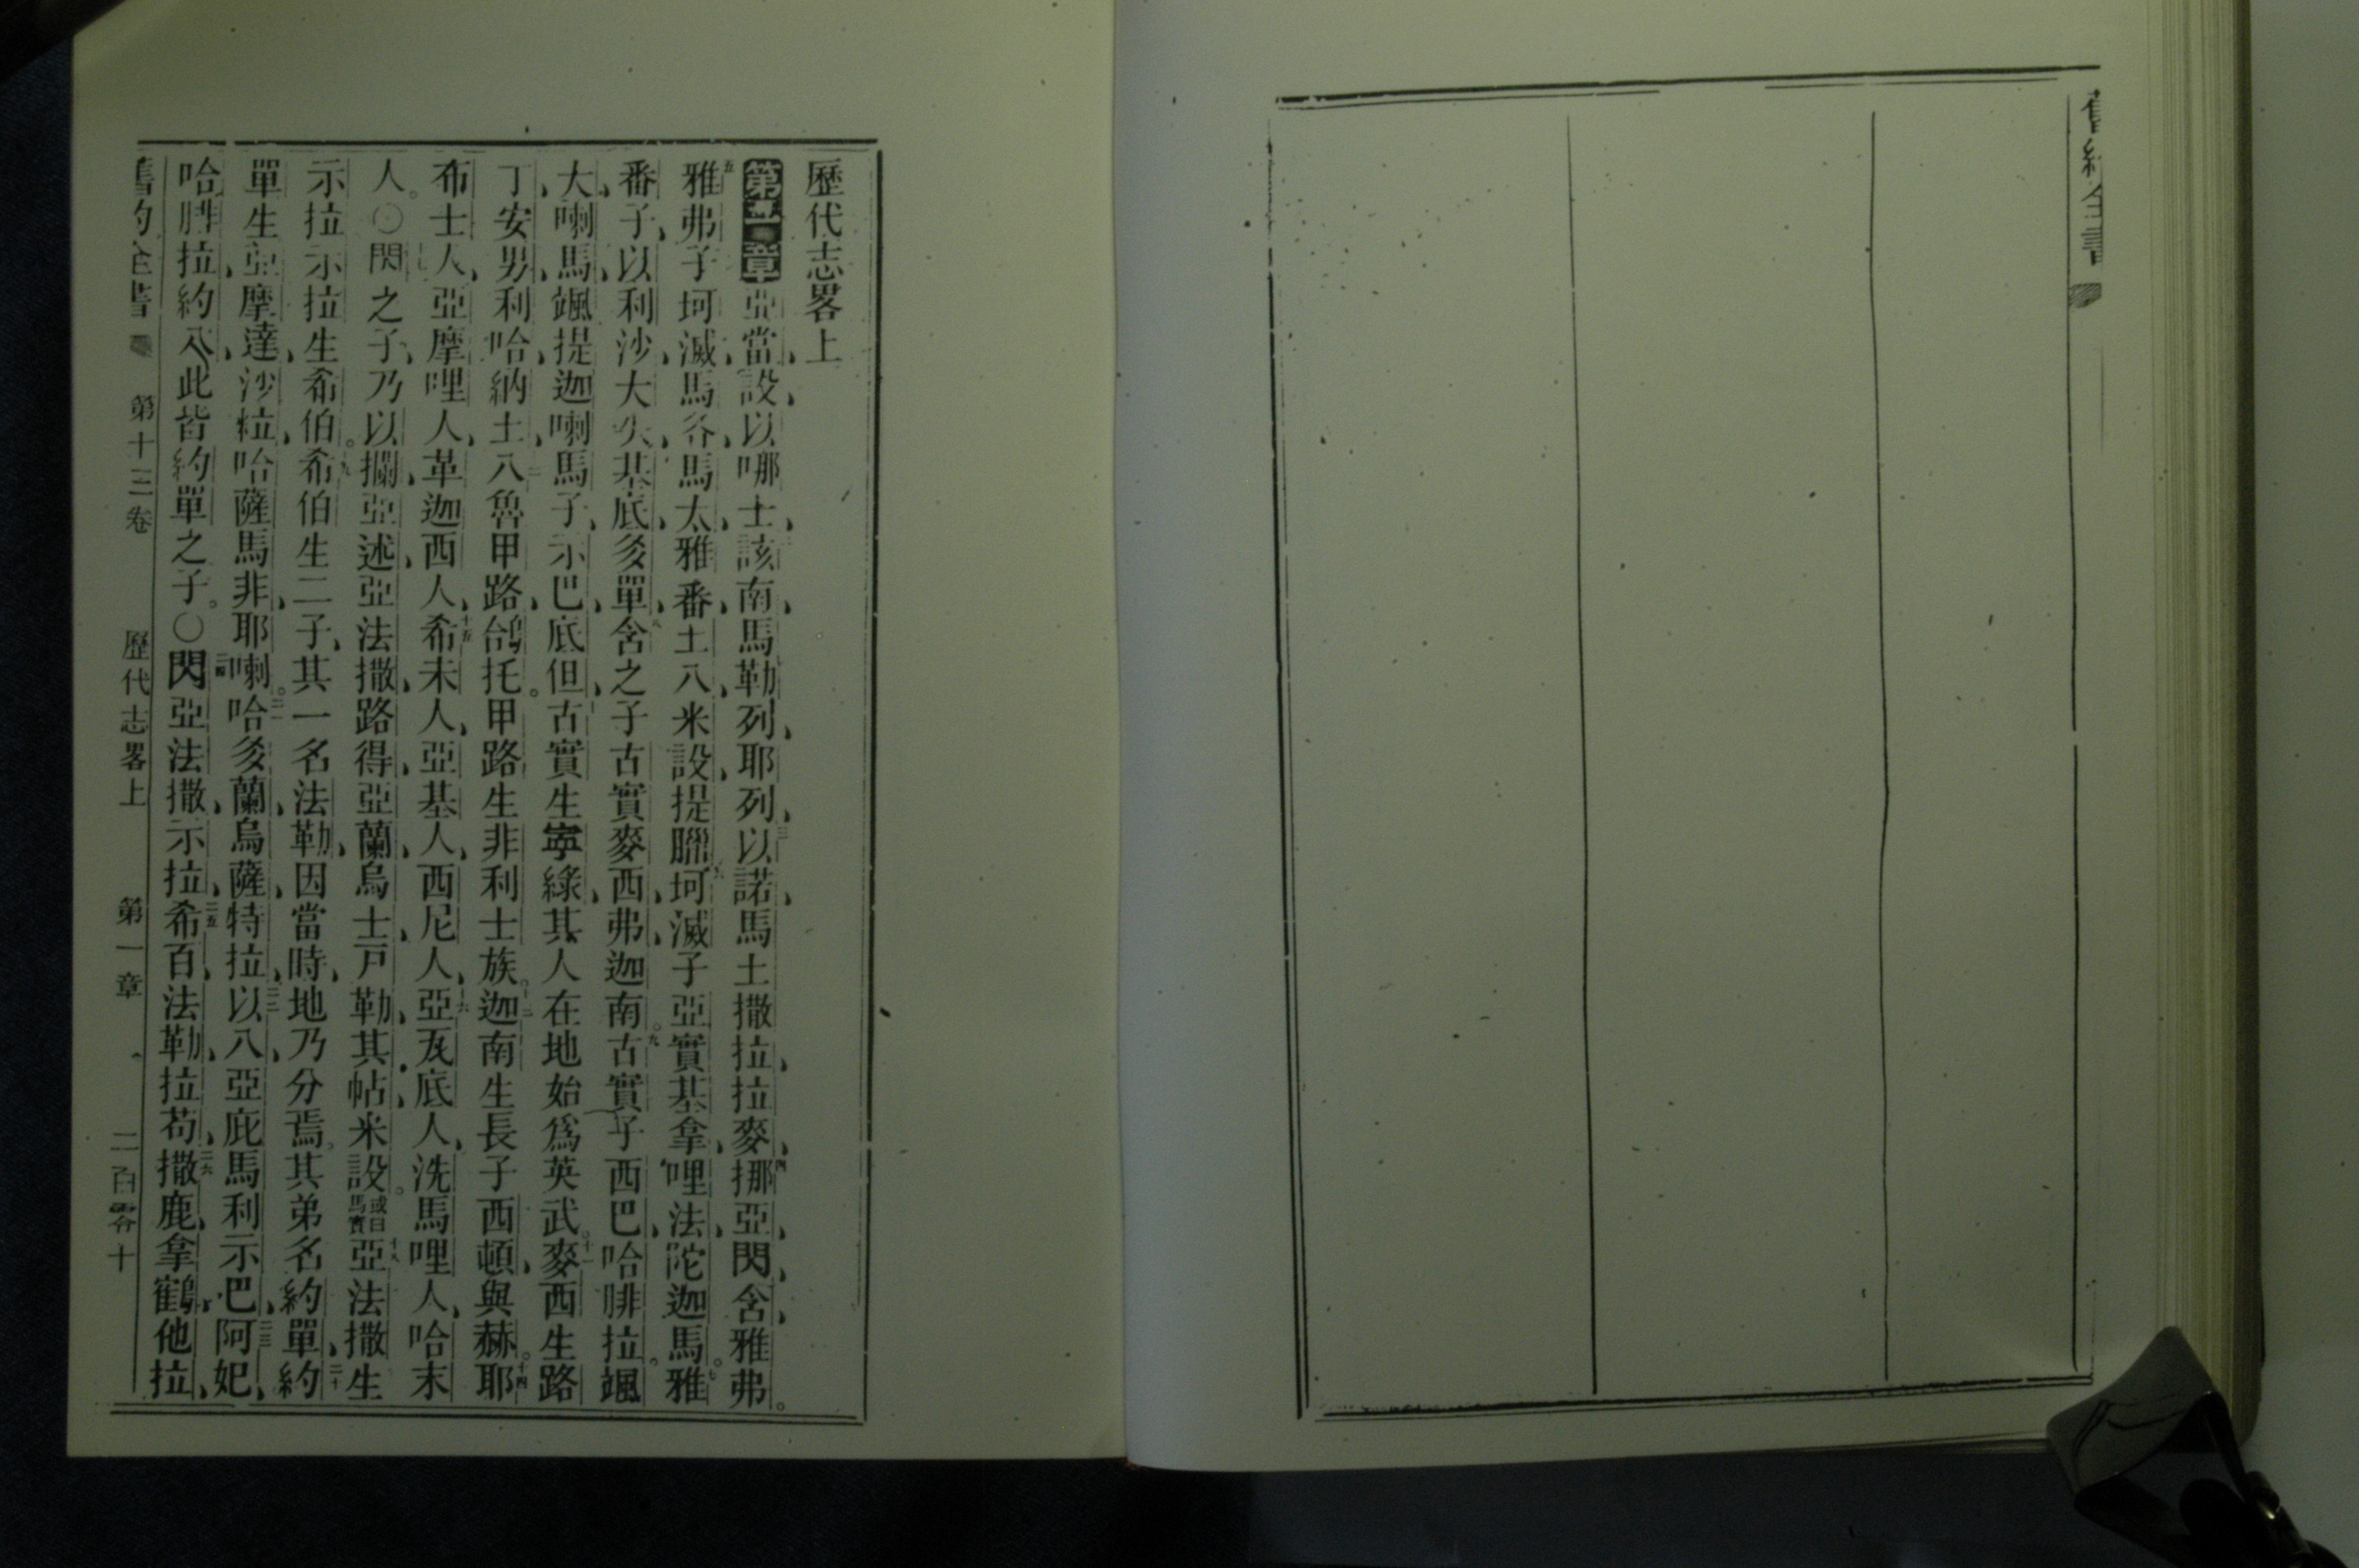 舊約全書
歷代志畧上
第一章亞當、設、以哪士、該南、馬勒列、耶列、以諾、馬土撒拉、拉麥、挪亞、閃、含、雅弗。
雅弗子珂滅、馬各、馬太、雅番、土八、米設、提臘、珂滅子亞實基拿、哩法、陀迦馬。雅
番子以利沙、大失、基底、多單、含之子古實、麥西、弗、迦南。古實子西巴、哈腓拉。颯
大、喇馬、颯提迦、喇馬子、示巴、底但、古實生寧綠、其人在地始爲英武。麥西生路
丁、安男、利哈、納土八、魯甲路、鴿托。甲路生非利士族。迦南生長子西頓、與赫。耶
布士人、亞摩哩人、革迦西人、希未人、亞基人、西尼人、亞瓦底人、洗馬哩人、哈末
人。〇閃之子、乃以攔、亞述、亞法撒、路得、亞蘭、烏士、戸勒、其帖、米設。或曰馬實亞法撒生
示拉、示拉生希伯。希伯生二子、其一名法勒、因當時、地乃分焉、其弟名約單、約
單生亞摩達、沙粒、哈薩馬非、耶喇。哈多蘭、烏薩、特拉、以八、亞庇馬利、示巴、阿妃、
哈腓拉、約八、此皆約單之子。〇閃、亞法撒、示拉、希百、法勒、拉苟、撒鹿、拿鶴、他拉、
舊約全書 第十三卷 歷代志畧上 第一章 二百零十